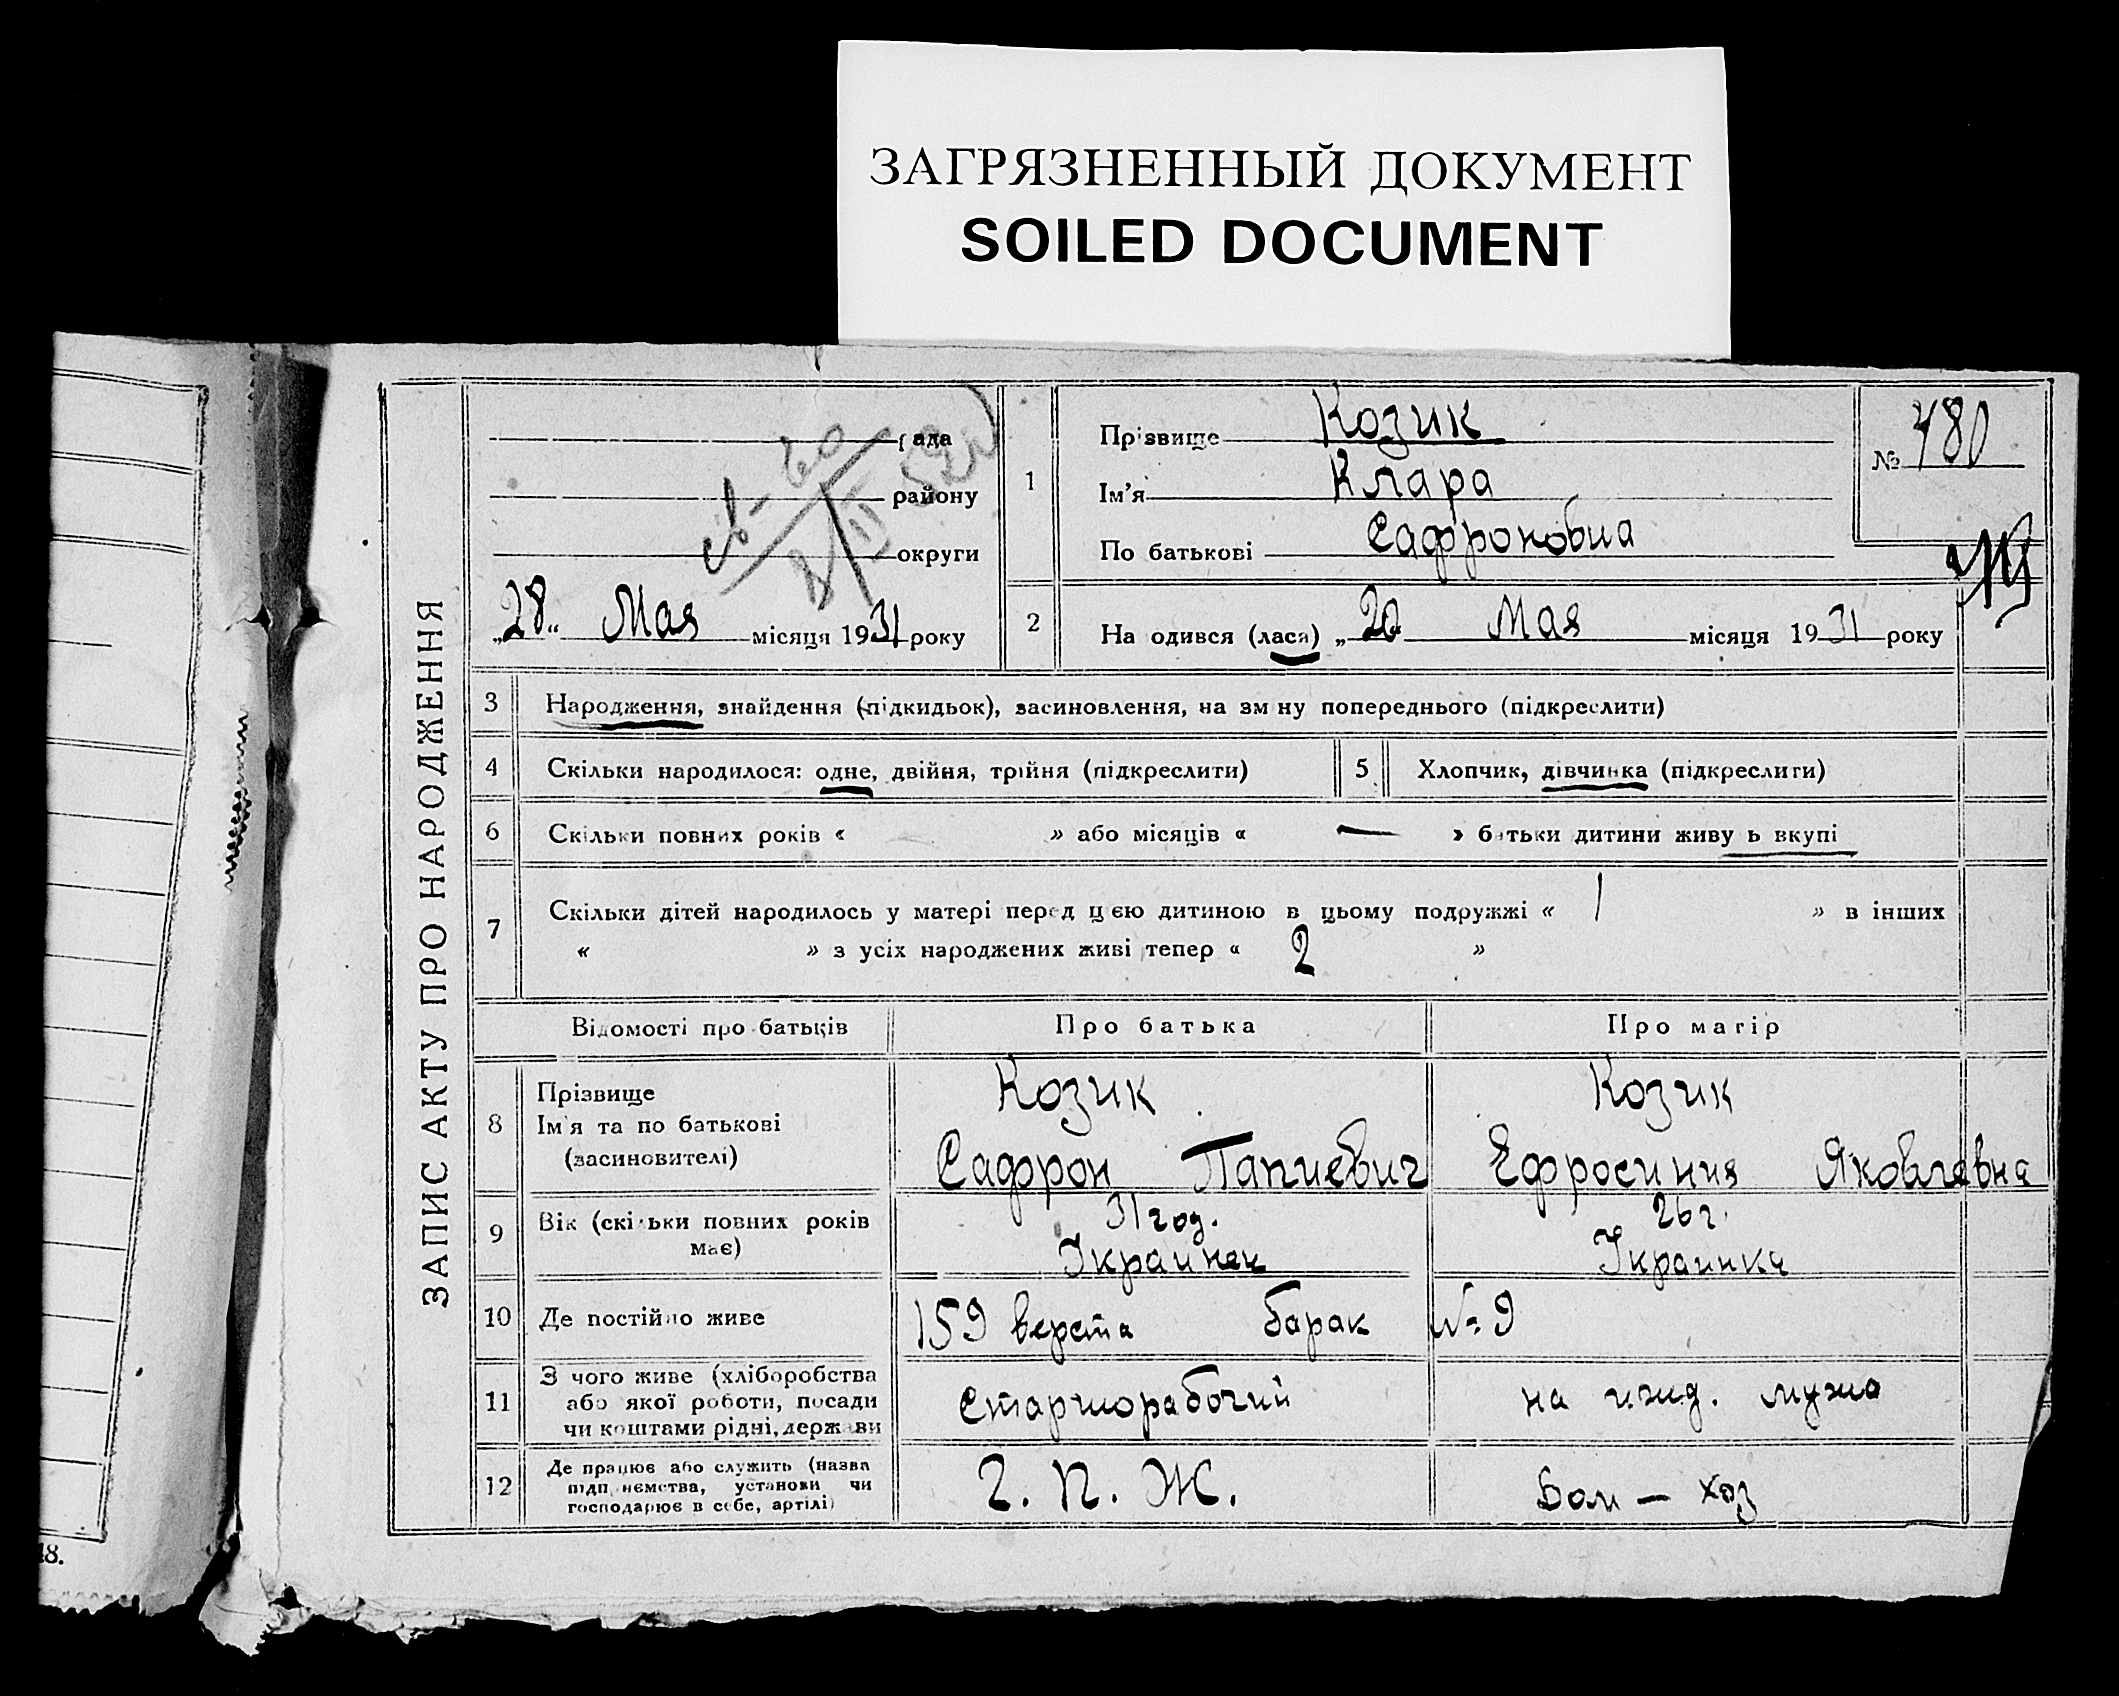 ЗАГРЯЗНЕННЫЙ ДОКУМЕНТ
SOILED DOCUMENT
ЗАПИС АКТУ ПРО НАРОДЖЕННЯ
рада
району
округи
„28“ Мая місяця 1931 року
1
Прізвище Козик
Ім'я Клара
По батькові Сафроновна
№ 480
2
На одився (лася) „20 Мая місяця 1931 року
3 Народження, знайдення (підкидьок), засиновлення, на зм ну попереднього (підкреслити)
4 Скільки народилося: одне, двійня, трійня (підкреслити)
5 Хлопчик, дівчинка (підкреслити)
6 Скільки повних років « » або місяців « — » батьки дитини живу ь вкупі
7 Скільки дітей народилось у матері перед цією дитиною в цьому подружжі « 1 » в інших
« » з усіх народжених живі тепер « 2 »
Відомості про батьків Про батька Про матір
8 Прізвище
Ім'я та по батькові
(засиновителі)
Козик
Сафрон Папиевич
Козик
Ефросиния Яковлевна
9 Вік (скільки повних років
має)
31 год.
Украинец
26 г.
Украинка
10 Де постійно живе 159 верста барак № 9
11 З чого живе (хліборобства
або якої роботи, посади
чи коштами рідні, держави
Старшорабочий
на ижд. мужа
12 Де працює або служить (назва
підприємства, установи чи
господарює в себе, артілі)
Ю. П. Ж.
Дом – хоз
48.